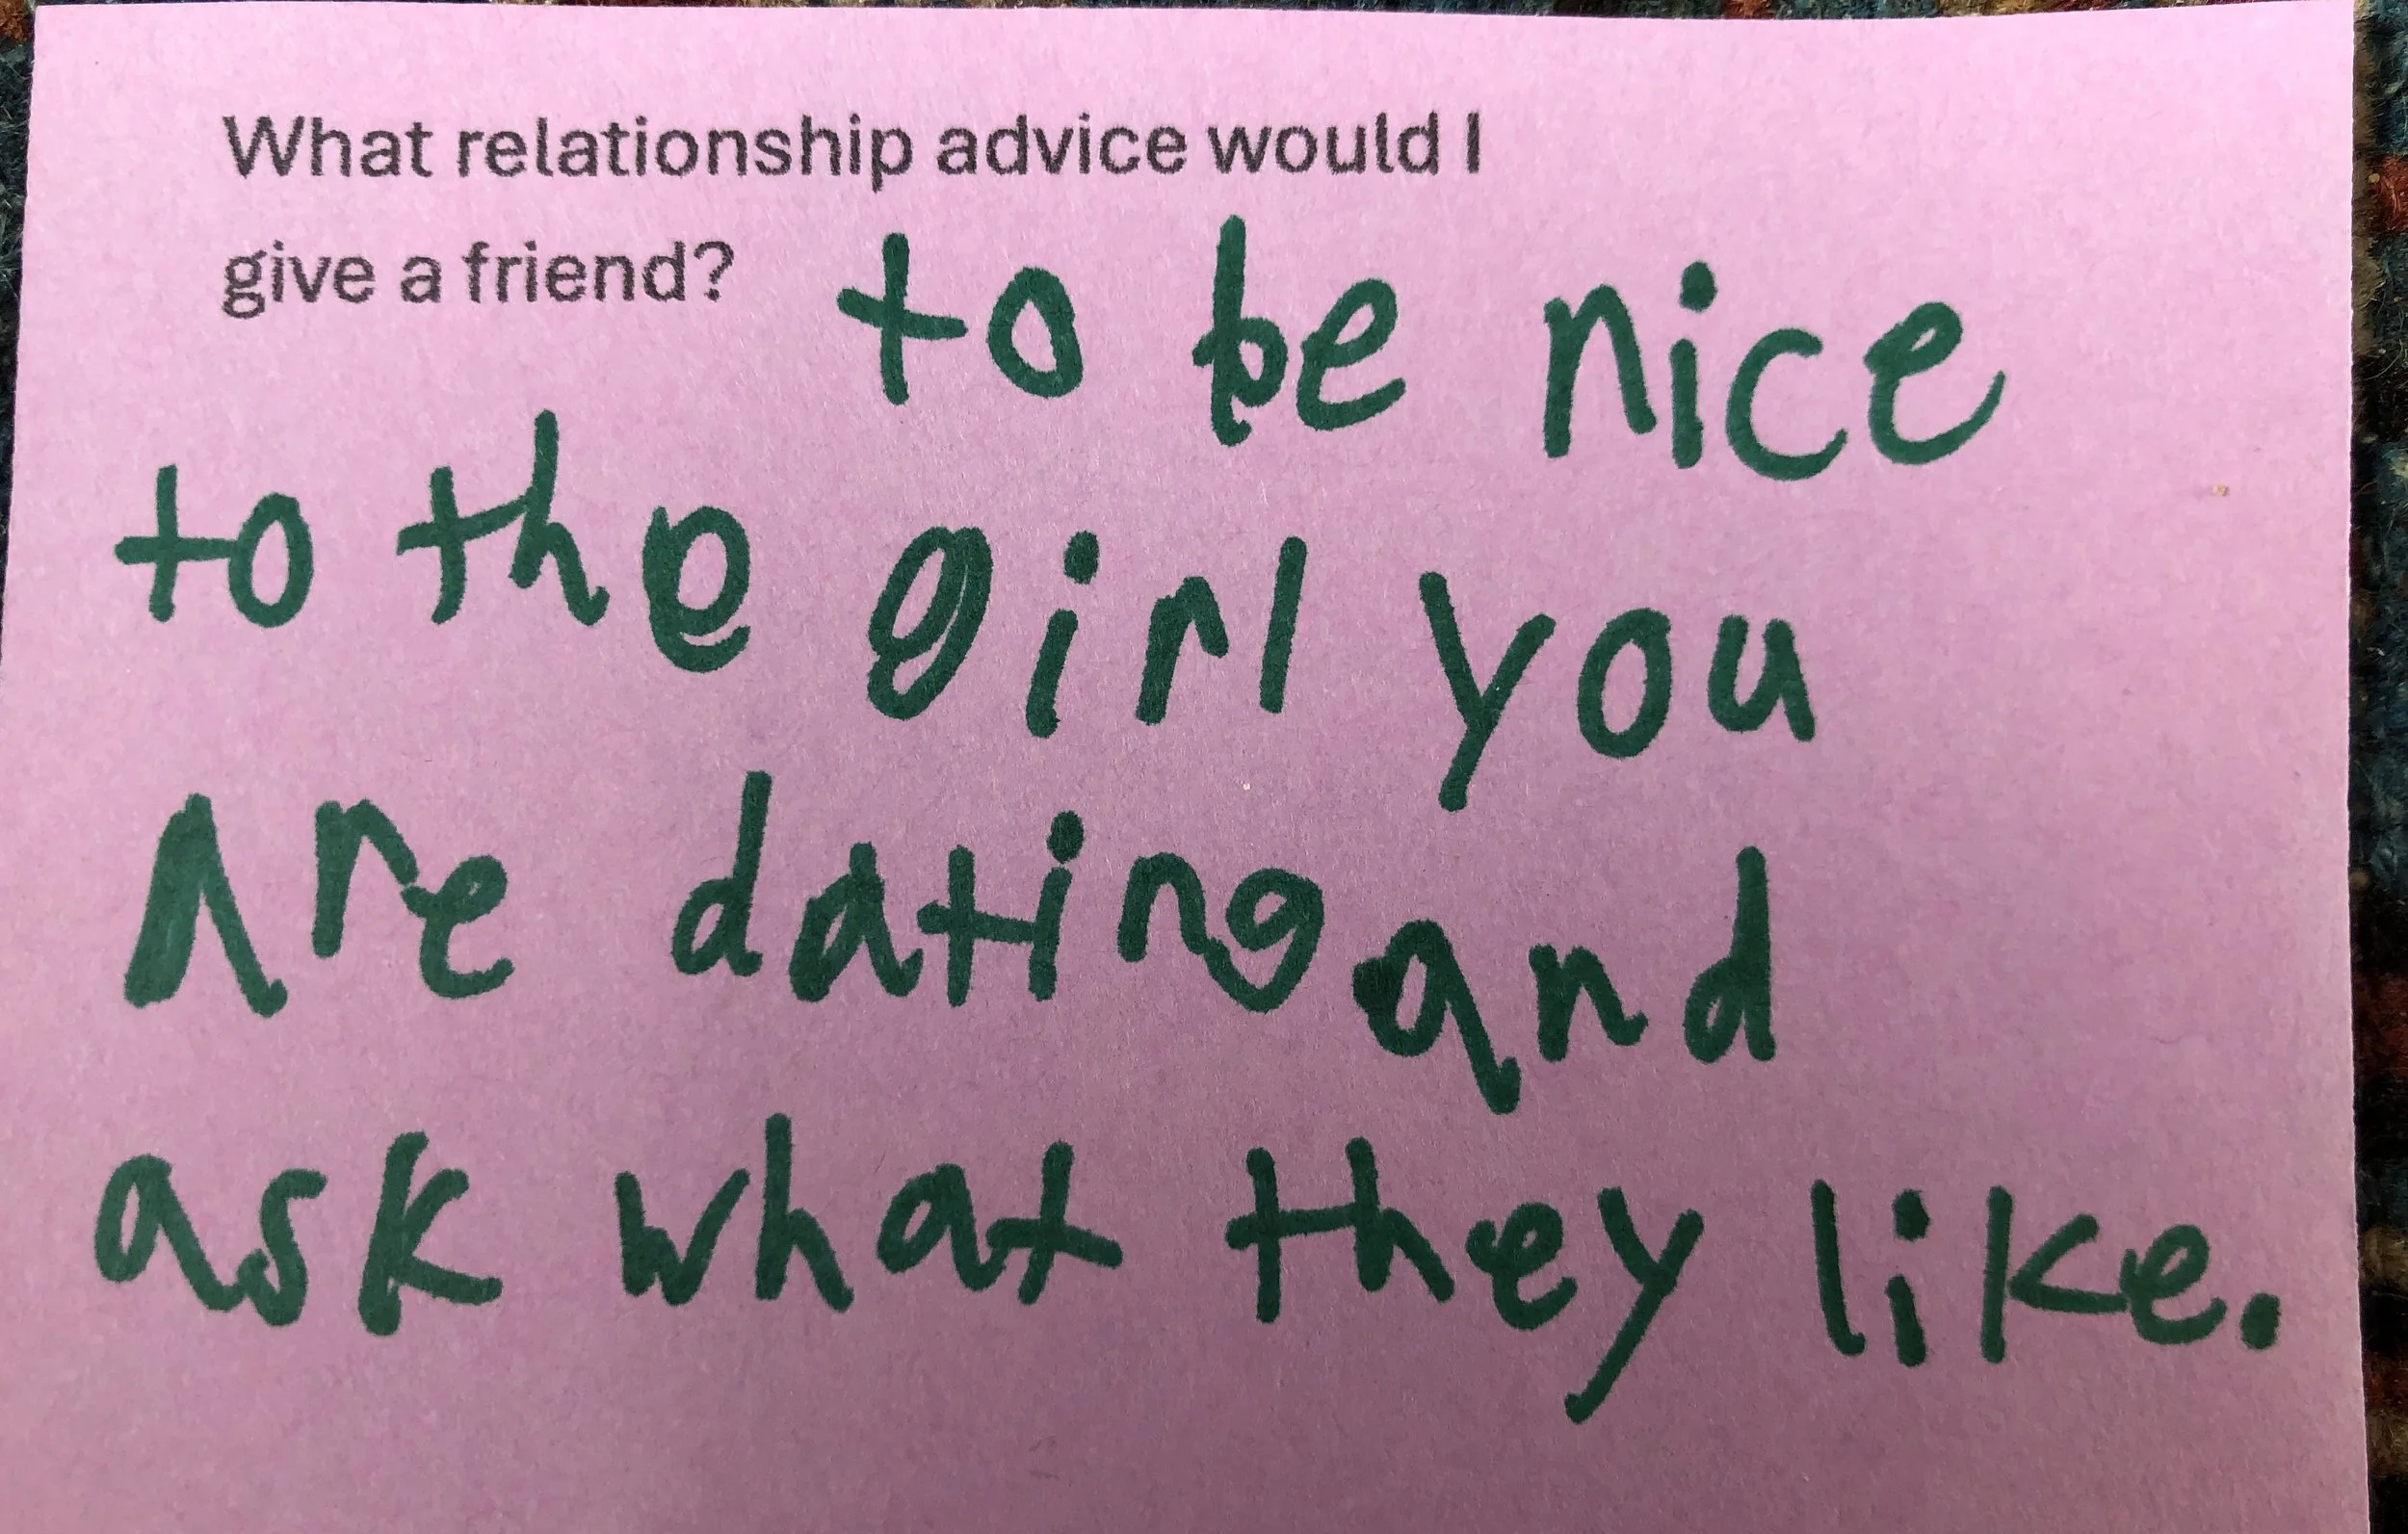 What relationship advice would I
give a friend? to be nice
to the girl you
Are dating and
ask what they like.